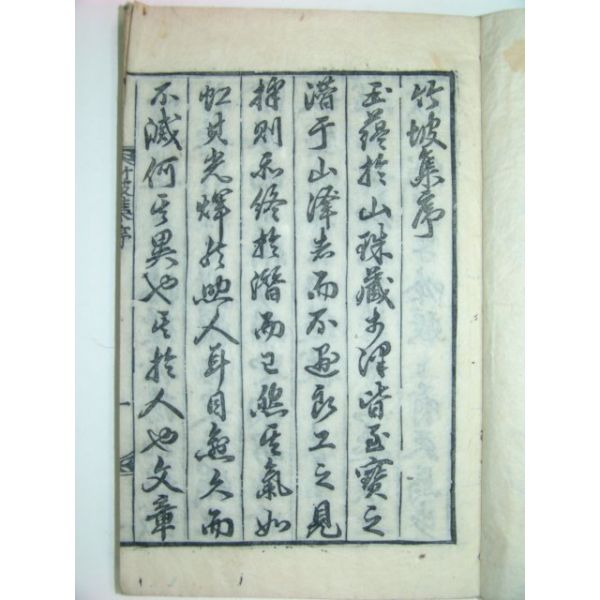 竹坡集序
玉蘊於山珠藏於澤皆至寶之
潛于山澤者而不遇良工之見
擇則亦終於潛而已然其氣如
虹其光輝然照人耳目愈久而
不滅何其異也其於人也文章
竹坡集序
一